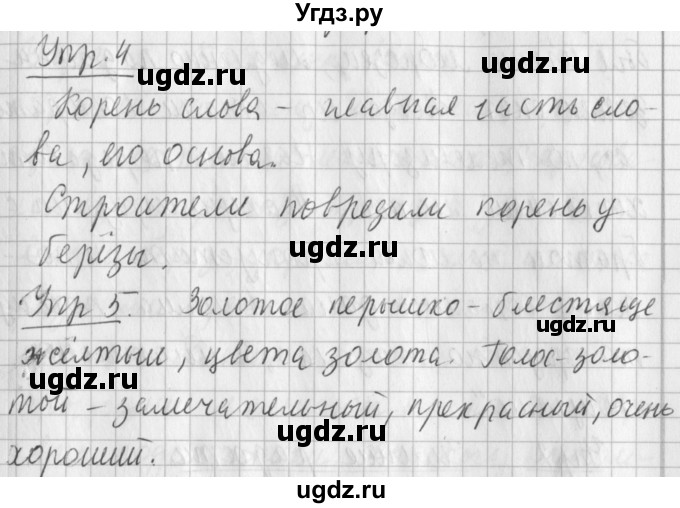 Угдз.ру
Упр. 4
ugdz.ru
Корень слова - главная часть сло-
ugdz.ru
ва, его основа.
Строители повредили корень у
ugdz.ru
берёзы.
Упр 5. Золотое перышко - блестяще
ugdz.ru
жёлтый, цвета золота. Голос - золо-
ugdz.ru
той - замечательный, прекрасный, очень
ugdz.ru
хороший.
ugdz.ru